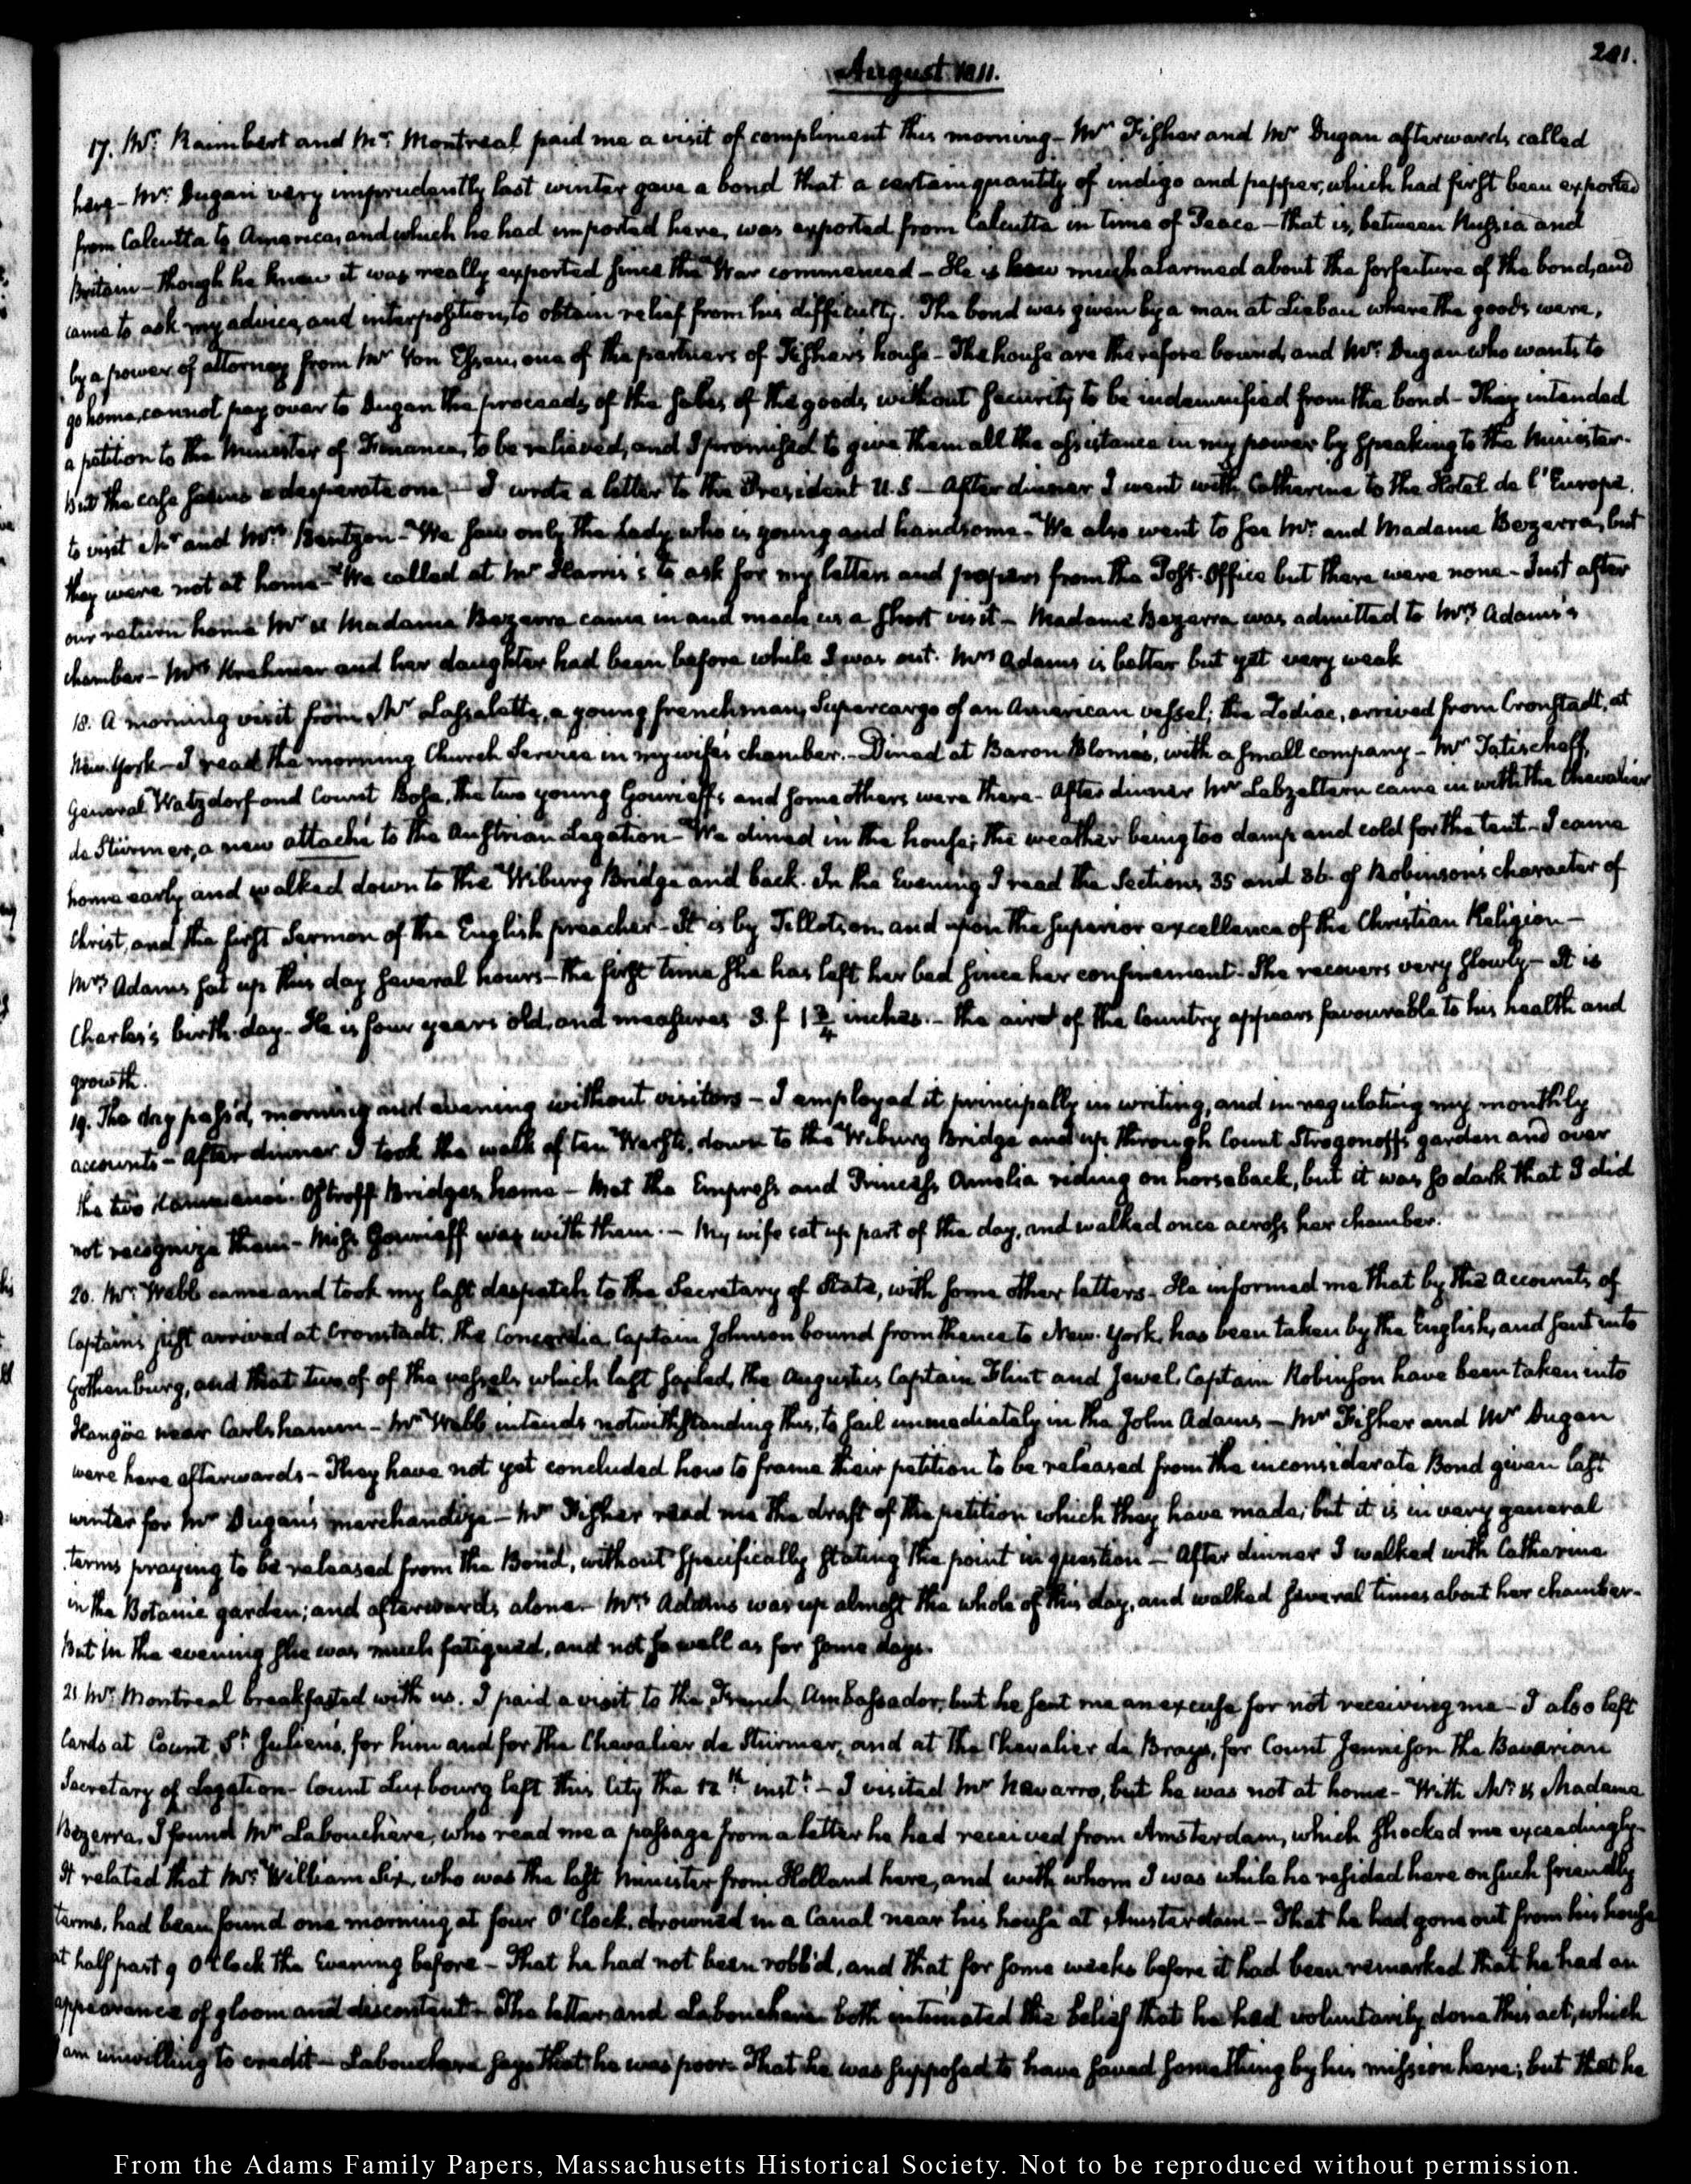 201.
August 1811.
17. Mr: Raimbert and Mr: Montreal paid me a visit of compliment this morning — Mr Fisher and Mr Dugan afterwards called
here — Mr: Dugan very imprudently last winter gave a bond that a certain quantity of indigo and pepper, which had first been exported
from Calcutta to America, and which he had imported here, was exported from Calcutta in time of Peace — that is, between Russia and
Britain — though he knew it was really exported since the War commenced — He is now much alarmed about the forfeiture of the bond, and
came to ask my advice, and interposition, to obtain relief from his difficulty. The bond was given by a man at Liebau where the goods were,
by a power of attorney from Mr Von Essen, one of the partners of Fisher's house — The house are therefore bound, and Mr: Dugan who wants to
go home, cannot pay over to Dugan the proceeds of the sales of the goods, without security to be indemnified from the bond — They intended
a petition to the Minister of Finances, to be relieved, and I promised to give them all the assistance in my power by speaking to the Minister.
But the case seems a desperate one — I wrote a letter to the President U.S — After dinner I went with Catherine to the Hotel de l'Europe,
to visit Mr and Mrs: Bentzon — We saw only the Lady who is young and handsome — We also went to see Mr: and Madame Bezerra, but
they were not at home — We called at Mr Harris's to ask for my letters and papers from the Post-Office but there were none — Just after
our return home Mr & Madame Bezerra came in and made us a short visit — Madame Bezerra was admitted to Mrs Adams's
chamber — Mrs Krehmer and her daughter had been before while I was out. Mrs Adams is better but yet very weak
18. A morning visit from Mr Lassalette, a young frenchman, Supercargo of an American vessel; the Zodiac, arrived from Cronstadt, at
New-York — I read the morning Church Service in my wife's chamber. — Dined at Baron Blome's, with a small company — Mr Tatischeff,
General Watzdorf and Count Bose, the two young Gourieffs and some others were there — After dinner Mr Lebzeltern came in with the Chevalier
de Stürmer, a new attaché to the Austrian Legation — We dined in the house; the weather being too damp and cold for the tent — I came
home early and walked down to the Wiburg Bridge and back. In the Evening I read the Sections 35 and 36 of Robinson's character of
Christ, and the first Sermon of the English preacher — It is by Tillotson, and upon the superior excellence of the Christian Religion —
Mrs Adams sat up this day several hours — the first time she has left her bed since her confinement — She recovers very slowly — It is
Charles's birth-day — He is four years old, and measures 3.f 1 3/4 inches. — The air of the Country appears favourable to his health and
growth.
19. The day pass'd, morning and evening without visitors — I employed it principally in writing, and in regulating my monthly
accounts — After dinner I took the walk of ten Wersts, down to the Wiburg Bridge and up through Count Strogonoff's garden and over
the two Kamenoi-Ostroff Bridges, home — Met the Empress and Princess Amelia riding on horseback, but it was so dark that I did
not recognize them — Miss Gourieff was with them. — My wife sat up part of the day, and walked once across her chamber.
20. Mr: Webb came and took my last despatch to the Secretary of State, with some other letters — He informed me that by the Accounts of
Captains just arrived at Cronstadt, the Concordia, Captain Johnson bound from thence to New-York, has been taken by the English, and sent into
Gothenburg, and that two of of the vessels which last sailed, the Augustus Captain Flint and Jewel, Captain Robinson have been taken into
Hangöe near Carlshamm — Mr Webb intends notwithstanding this, to sail immediately in the John Adams — Mr Fisher and Mr Dugan
were here afterwards — They have not yet concluded how to frame their petition to be released from the inconsiderate Bond given last
winter for Mr Dugan's merchandize — Mr Fisher read me the draft of the petition which they have made; but it is in very general
terms praying to be released from the Bond, without specifically stating the point in question — After dinner I walked with Catherine
in the Botanic garden; and afterwards alone — Mrs Adams was up almost the whole of this day, and walked several times about her chamber —
But in the evening she was much fatigued, and not so well as for some days.
21 Mr: Montreal breakfasted with us. I paid a visit to the French Ambassador, but he sent me an excuse for not receiving me — I also left
Cards at Count St. Julien's, for him and for the Chevalier de Stürmer, and at the Chevalier de Bray's, for Count Jennison the Bavarian
Secretary of Legation — Count Luxbourg left this City the 12th inst: — I visited Mr Navarro, but he was not at home — With Mr: & Madame
Bezerra, I found Mr Labouchère, who read me a passage from a letter he had received from Amsterdam, which shocked me exceedingly —
It related that Mr: William Six, who was the last Minister from Holland here, and with whom I was while he resided here on such friendly
terms, had been found one morning at four O'Clock, drowned in a Canal near his house at Amsterdam — That he had gone out from his house
at half past 9 O'Clock the Evening before — That he had not been robb'd, and that for some weeks before it had been remarked that he had an
appearance of gloom and discontent — The letter, and Labouchere both intimated the belief that he had voluntarily done this act, which
I am unwilling to credit — Labouchere says that he was poor — That he was supposed to have saved something by his mission here; but that he
From the Adams Family Papers, Massachusetts Historical Society. Not to be reproduced without permission.